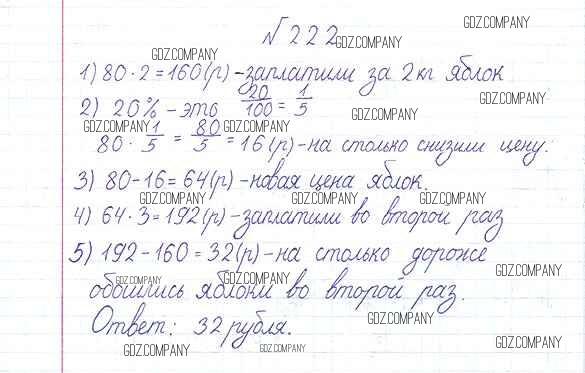 № 222
GDZ.COMPANY
GDZ.COMPANY
GDZ.COMPANY
1) 80 · 2 = 160 (р) - заплатили за 2 кг яблок
GDZ.COMPANY
2) 20% - это 20/100 = 1/5
GDZ.COMPANY
GDZ.COMPANY GDZ.COMPANY
80 · 1/5 = 80/5 = 16 (р) - на столько снизили цену.
3) 80 - 16 = 64 (р) - новая цена яблок.
GDZ.COMPANY GDZ.COMPANY GDZ.COMPANY
4) 64 · 3 = 192 (р) - заплатили во второй раз
5) 192 - 160 = 32 (р) - на столько дороже
GDZ.COMPANY GDZ.COMPANY GDZ.COMPANY
обошлись яблоки во второй раз.
Ответ: 32 рубля.
GDZ.COMPANY
GDZ.COMPANY GDZ.COMPANY GDZ.COMPANY